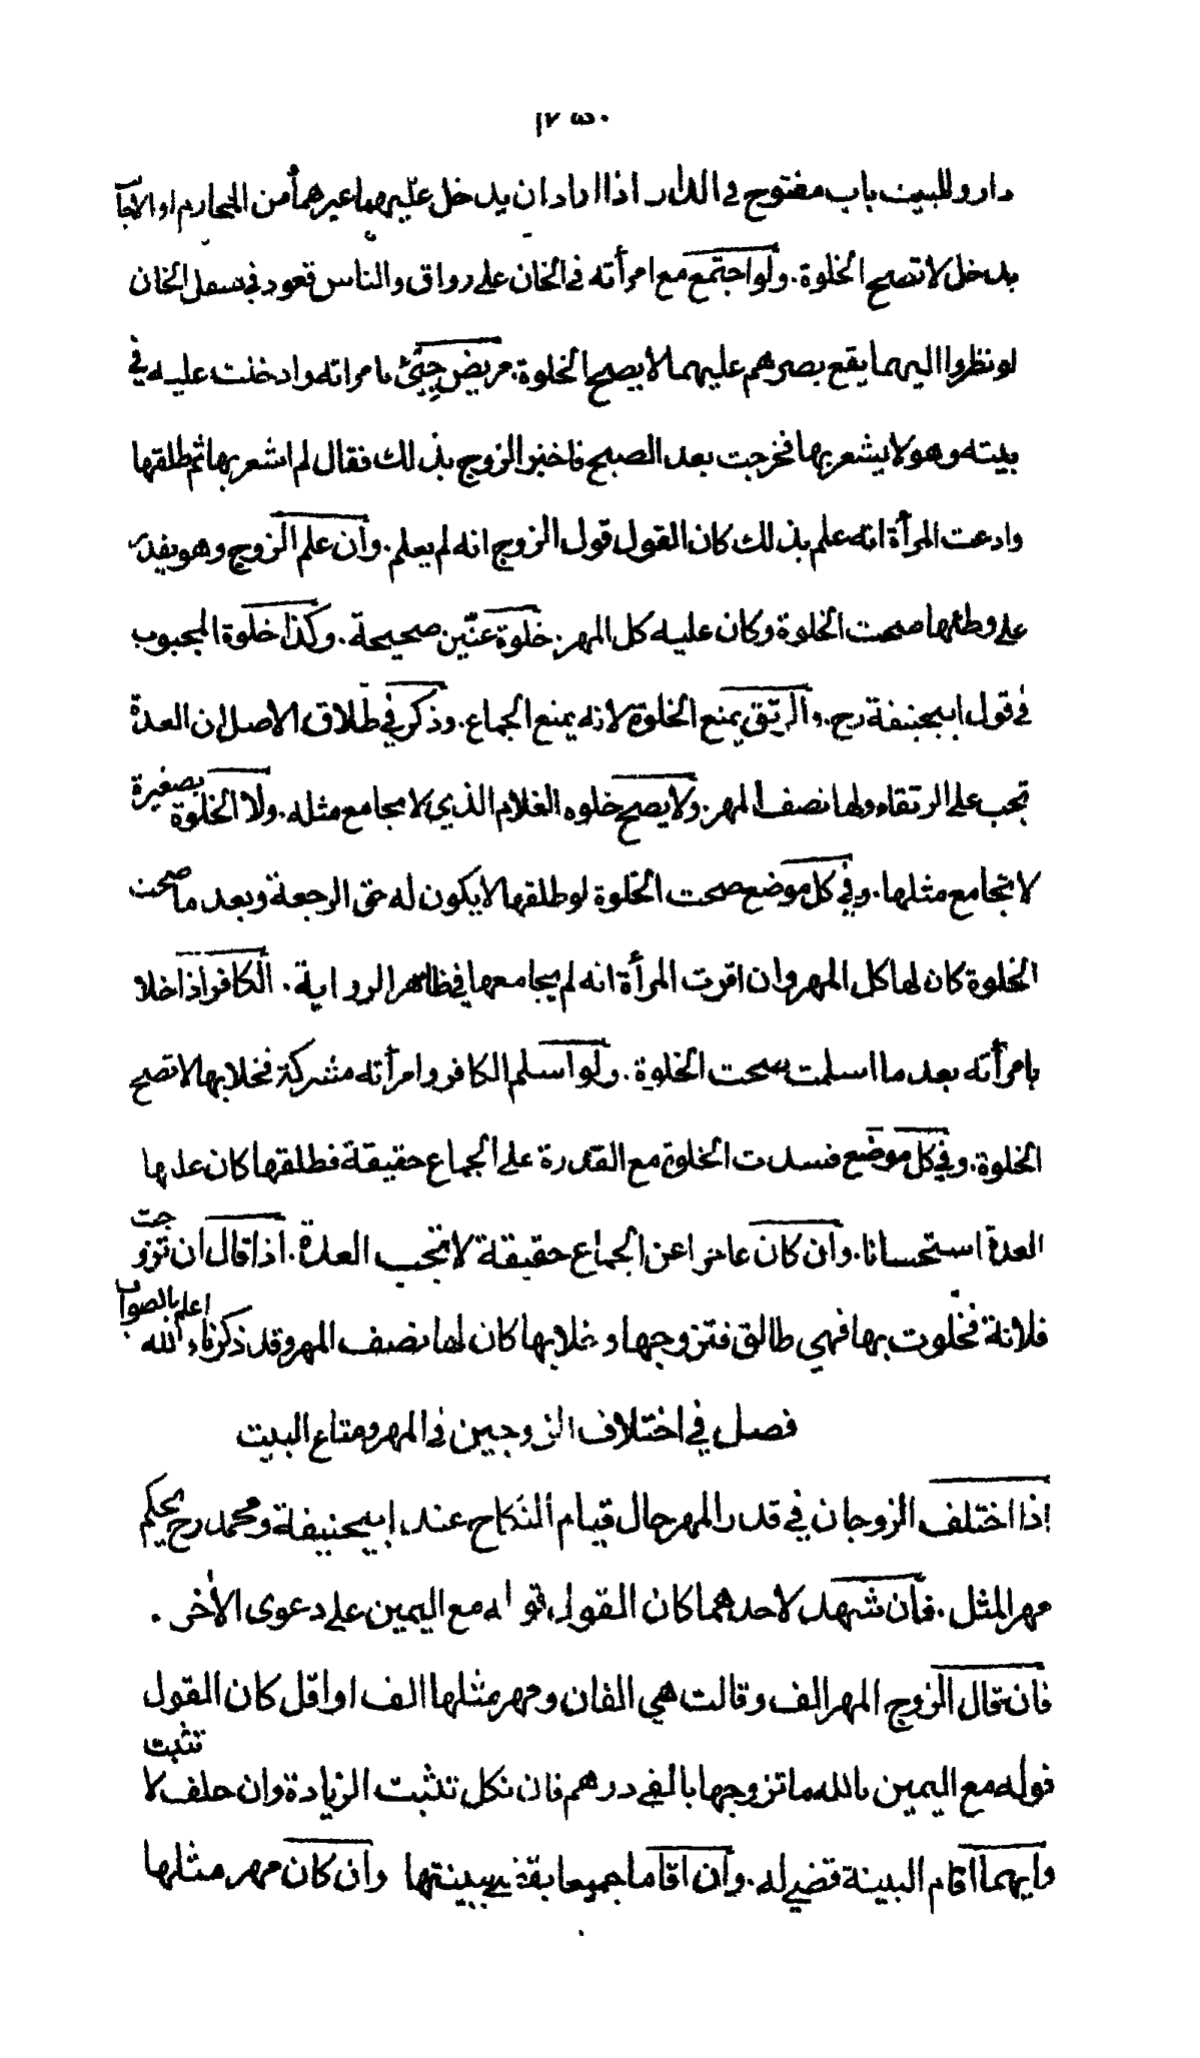 دار وللبيت باب مفتوح في الدار اذا اراد ان يدخل عليهما غيرهما من المحارم او الاجانب
يدخل لا تصح الخلوة . ولو اجتمع مع امرأته في الخان على رواق والناس قعود في سفل الخان
لو نظروا اليهما يقع بصرهم عليهما لا يصح الخلوة . مريض جيئ بامراته وادخلت عليه في
بيته وهو لا يشعر بها فخرجت بعد الصبح فاخبر الزوج بذلك فقال لم اشعر بها ثم طلقها
وادعت المرأة انه علم بذلك كان القول قول الزوج انه لم يعلم . وان علم الزوج وهو يقدر
على وطئها صحت الخلوة وكان عليه كل المهر . خلوة عنّين صحيحة . وكذا خلوة المجبوب
في قول ابيحنيفة رح . والرتق يمنع الخلوة لانه يمنع الجماع . وذكر في طلاق الاصل ان العدة
تجب على الرتقاء ولها نصف المهر . ولا يصح خلوه الغلام الذي لا يجامع مثله . ولا الخلوة بصغيرة
لا تجامع مثلها . وفي كل موضع صحت الخلوة لو طلقها لا يكون له حق الرجعة وبعد ما صحت
الخلوة كان لها كل المهر وان اقرت المرأة انه لم يجامعها في ظاهر الرواية . الكافر اذا خلا
بامرأته بعد ما اسلمت صحت الخلوة . ولو اسلم الكافر وامرأته مشركة فخلا بها لا تصح
الخلوة . وفي كل موضع فسدت الخلوة مع القدرة على الجماع حقيقة فطلقها كان عليها
العدة استحسانا . وان كان عاجزا عن الجماع حقيقة لا تجب العدة . اذا قال ان تزوجت
فلانة فخلوت بها فهي طالق فتزوجها وخلا بها كان لها نصف المهر وقد ذكرناه الله اعلم بالصواب
فصل في اختلاف الزوجين في المهر ومتاع البيت
اذا اختلف الزوجان في قدر المهر حال قيام النكاح عند ابيحنيفة ومحمد رح يحكم
مهر المثل . فان شهد لاحدهما كان القول قوله مع اليمين على دعوى الأخر .
فان قال الزوج المهر الف وقالت هي الفان ومهر مثلها الف او اقل كان القول
قوله مع اليمين بالله ما تزوجها بالفي درهم فان نكل تثبت الزيادة وان حلف لا تثبت
وايهما اقام البينة قضي له . وان اقاما جميعا يقضي ببينتها وان كان مهر مثلها